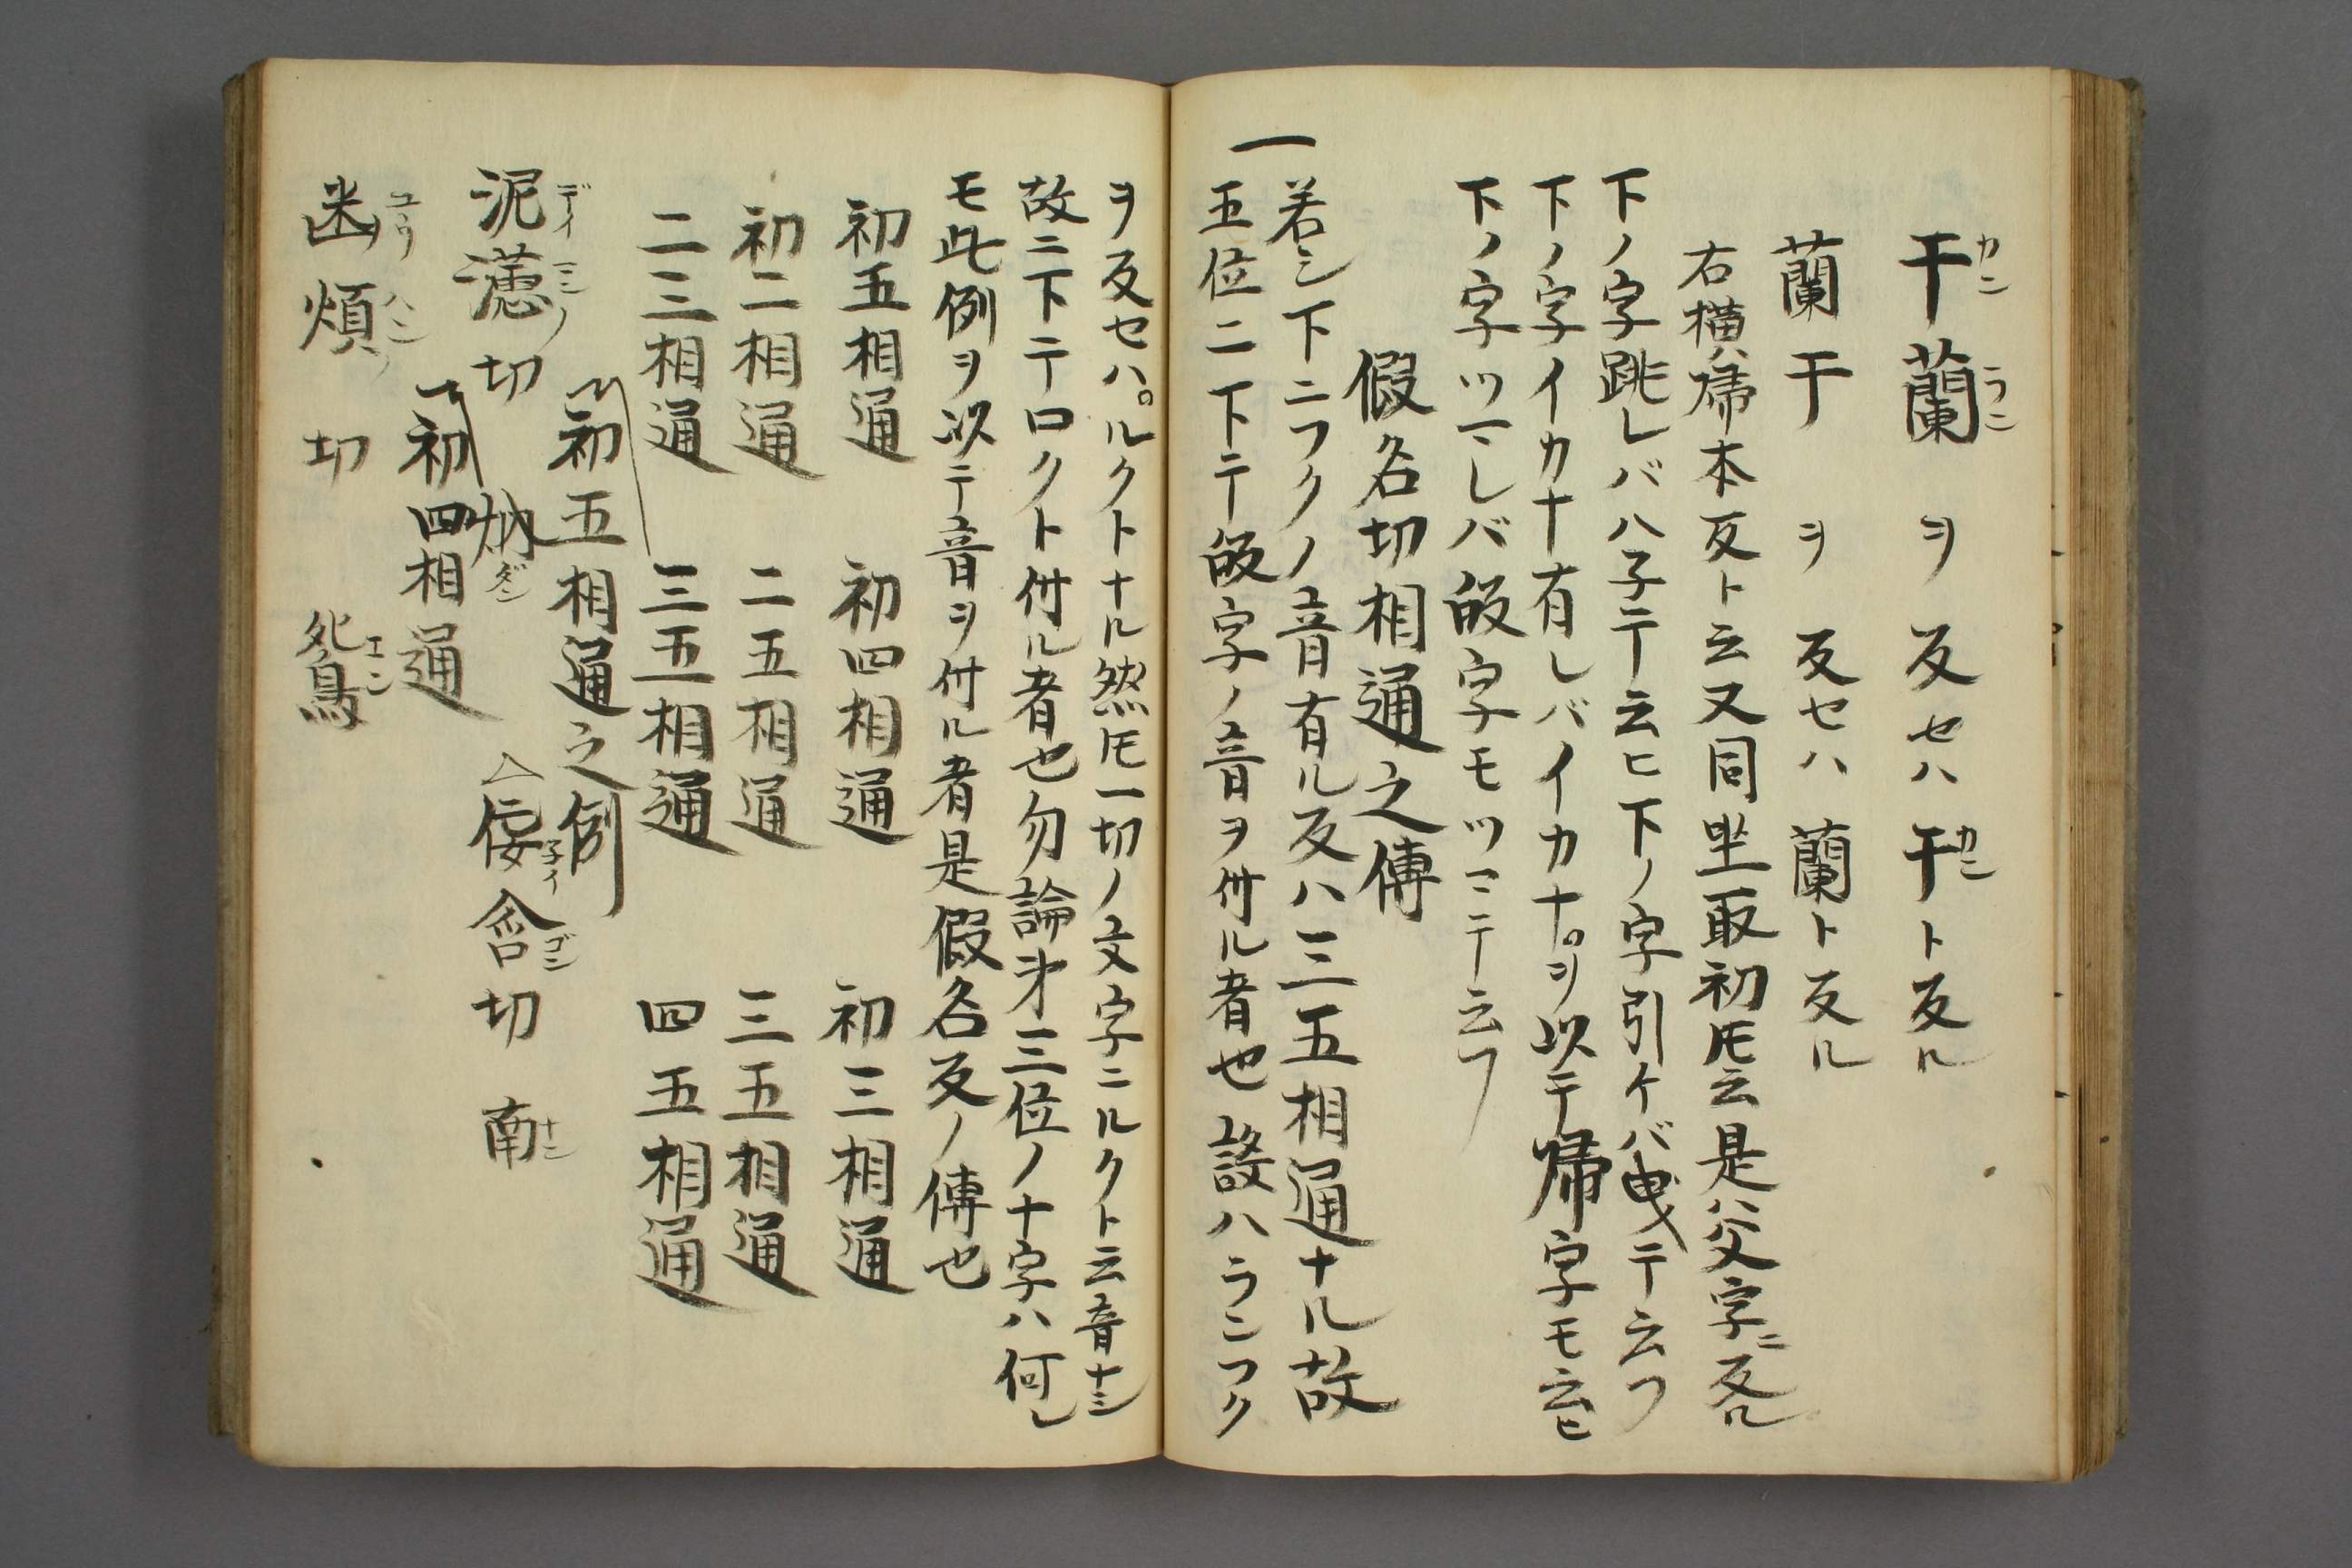 干蘭ヲ反セハ干ト反ル
カン ラン カン
蘭干ヲ反セハ蘭ト反ル
右横ハ帰本反ト云又同坐取初𪜈云是ハ父字ニ反ル
下ノ字跳レバハ子テ云ヒ下ノ字引ケバ曳テ云フ
下ノ字イカナ有レバイカナヲ以テ帰字モ云ヒ
下ノ字ツマレバ皈字モツマテ云フ
假名切相通之傳
一若シ下ニフクノ音有ル反ハ三五相通ナル故
五位ニ下テ皈字ノ音ヲ付ル者也譬ハランフク
ヲ反セハルクトナル然𪜈一切ノ文字ニルクト云音ナシ
故ニ下テロクト付ル者也勿論才三位ノ十字ハ何レ
モ此例ヲ以テ音ヲ付ル者是假名反ノ傳也
初五相通 初四相通 初三相通
初二相通 二五相通 三五相通
二三相通 三五相通 四五相通
初五相通之例
泥濦切 妠 △倭含切 南
デイ ミノ ダン 子イ ゴン ナン
初四相通
凼煩切 鴛
ユウ ハン エン